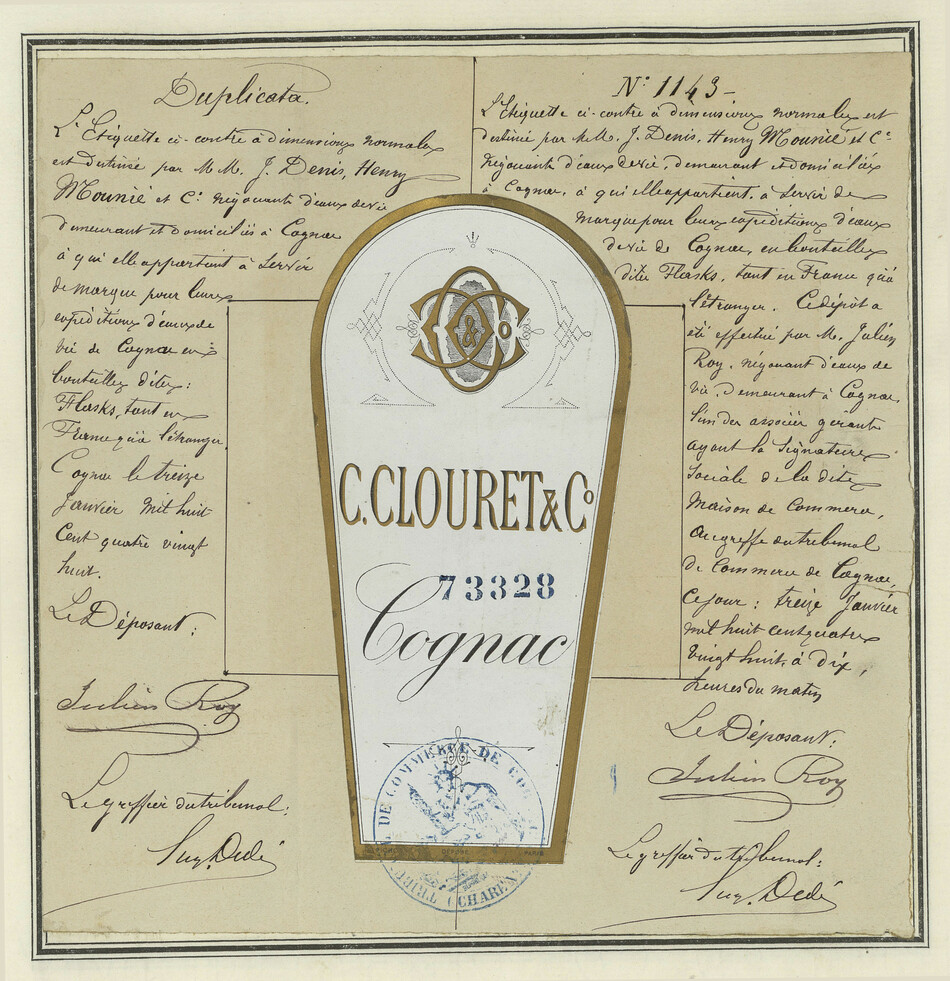 Duplicata.
L'Etiquette ci-contre à dimensions normales
est destinée par M M. J. Denis, Henry
Mounié et Cie négociants d'eaux de vie
demeurant et domiciliés à Cognac
à qui elle appartient à servir
de marque pour leurs
expéditions d'eaux de
vie de Cognac en
bouteilles dites:
Flasks, tant en
France qu'à l'étranger.
Cognac le treize
Janvier mil huit
Cent quatre vingt
huit.
Le Déposant:
Julien Roy
Le greffier du tribunal:
Dedé
C & Co
C. CLOURET & Co
73328
Cognac
TRIB. DE COMMERCE DE COGNAC
(CHARENTE)
PARIS
No 1143-
L'Etiquette ci-contre à dimensions normales est
destinée par M.M. J. Denis, Henry Mounié et Cie
négociants d'eaux de vie, demeurant et domiciliés
à Cognac, à qui elle appartient, à servir de
marque pour leurs expéditions d'eaux
de vie de Cognac, en bouteilles
dites Flasks, tant en France qu'à
l'étranger. Ce dépôt a
été effectué par M. Julien
Roy, négociant d'eaux de
vie, demeurant à Cognac,
l'un des associés gérants
ayant la Signature
Sociale de la dite
Maison de Commerce,
au greffe du tribunal
de Commerce de Cognac,
Ce jour: treize Janvier
mil huit cent quatre
vingt huit, à dix
heures du matin
Le Déposant:
Julien Roy
Le greffier du tribunal:
Dedé